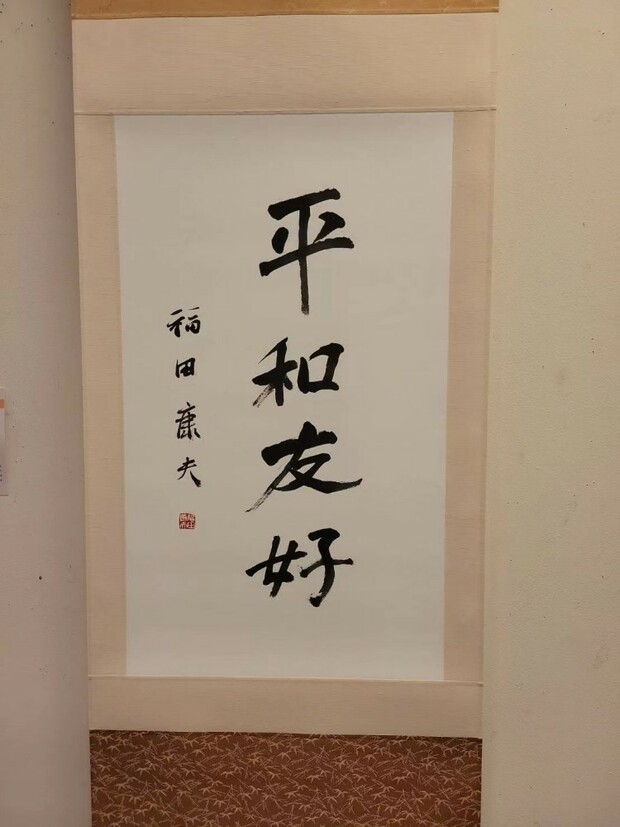 平和友好
福田康夫